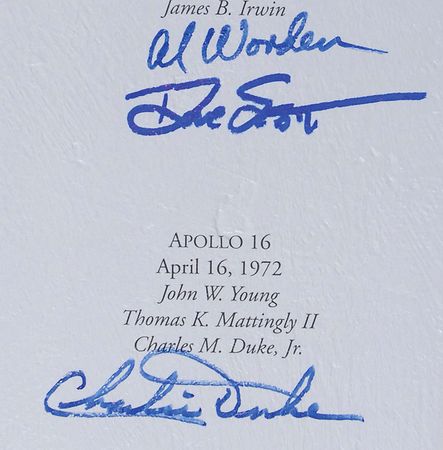 James B. Irwin
Al Worden
Dave Scott
APOLLO 16
April 16, 1972
John W. Young
Thomas K. Mattingly II
Charles M. Duke, Jr.
Charlie Duke